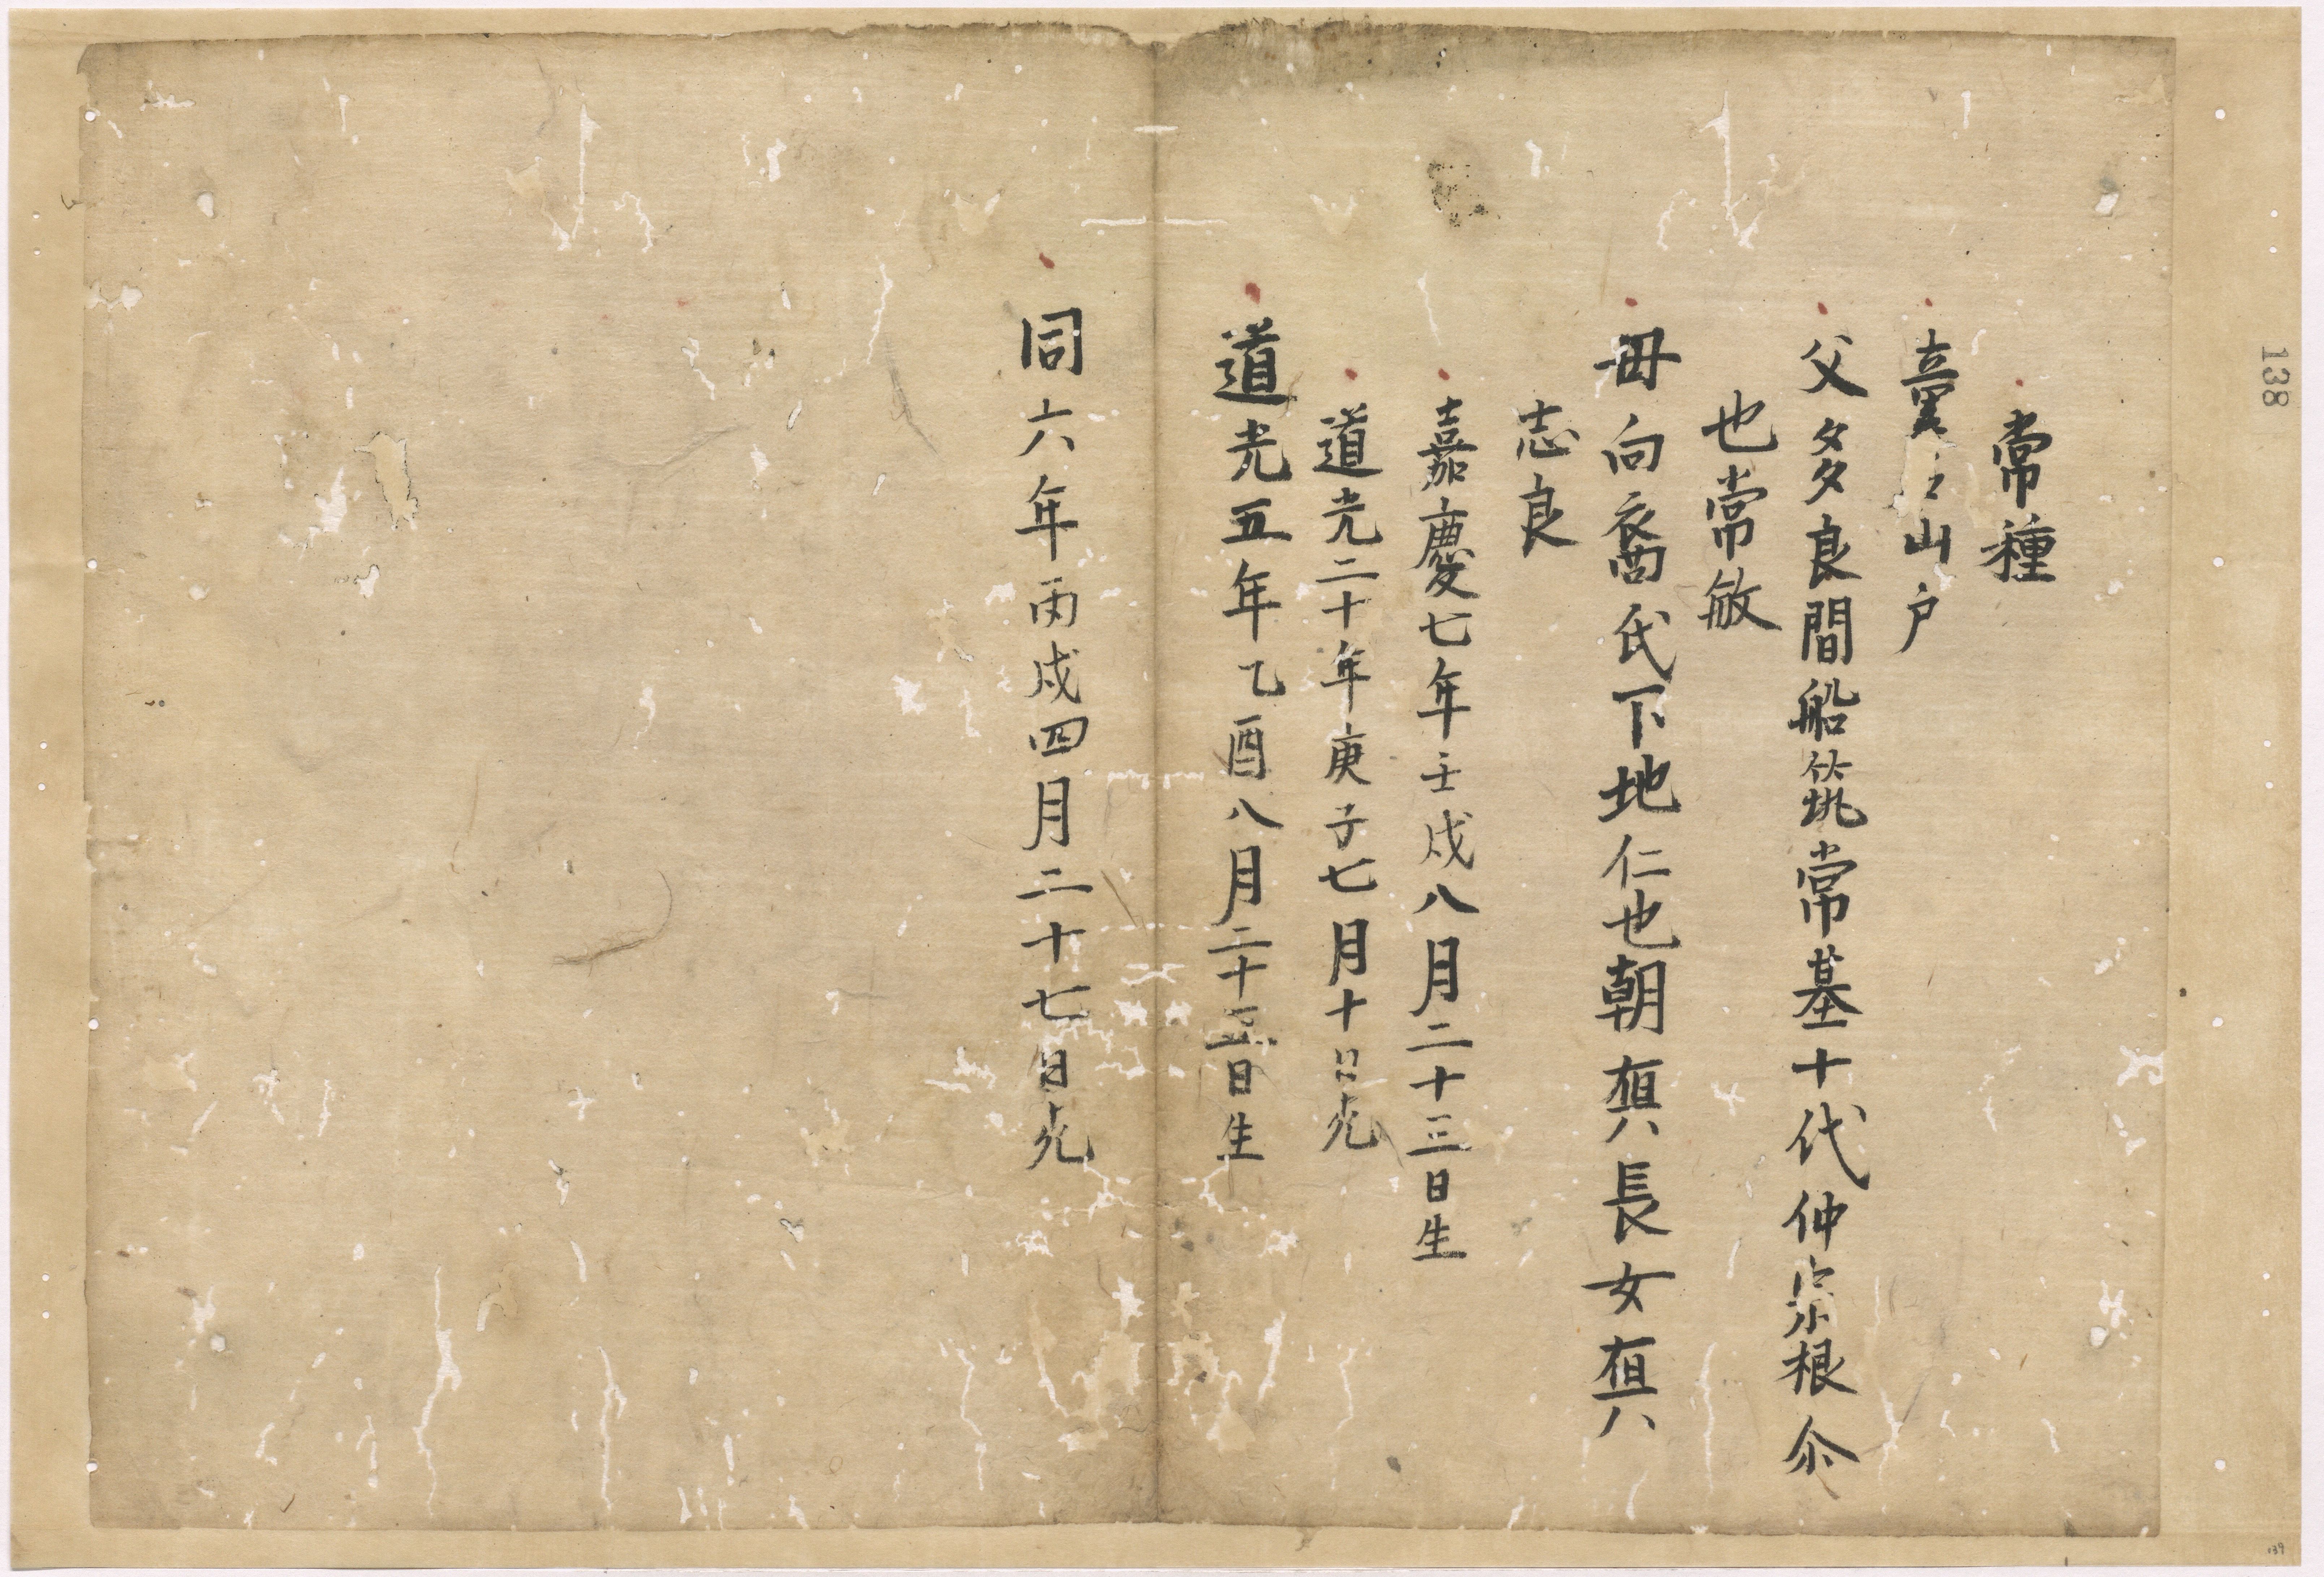 常種
童名山戸
父多良間船筑常基十代仲宗根尒
也常敏
母向裔氏下地仁也朝槙長女槙
志良
嘉慶七年壬戌八月二十三日生
道光二十年庚子七月十日死
道光五年乙酉八月二十五日生
同六年丙戌四月二十七日死
138
139